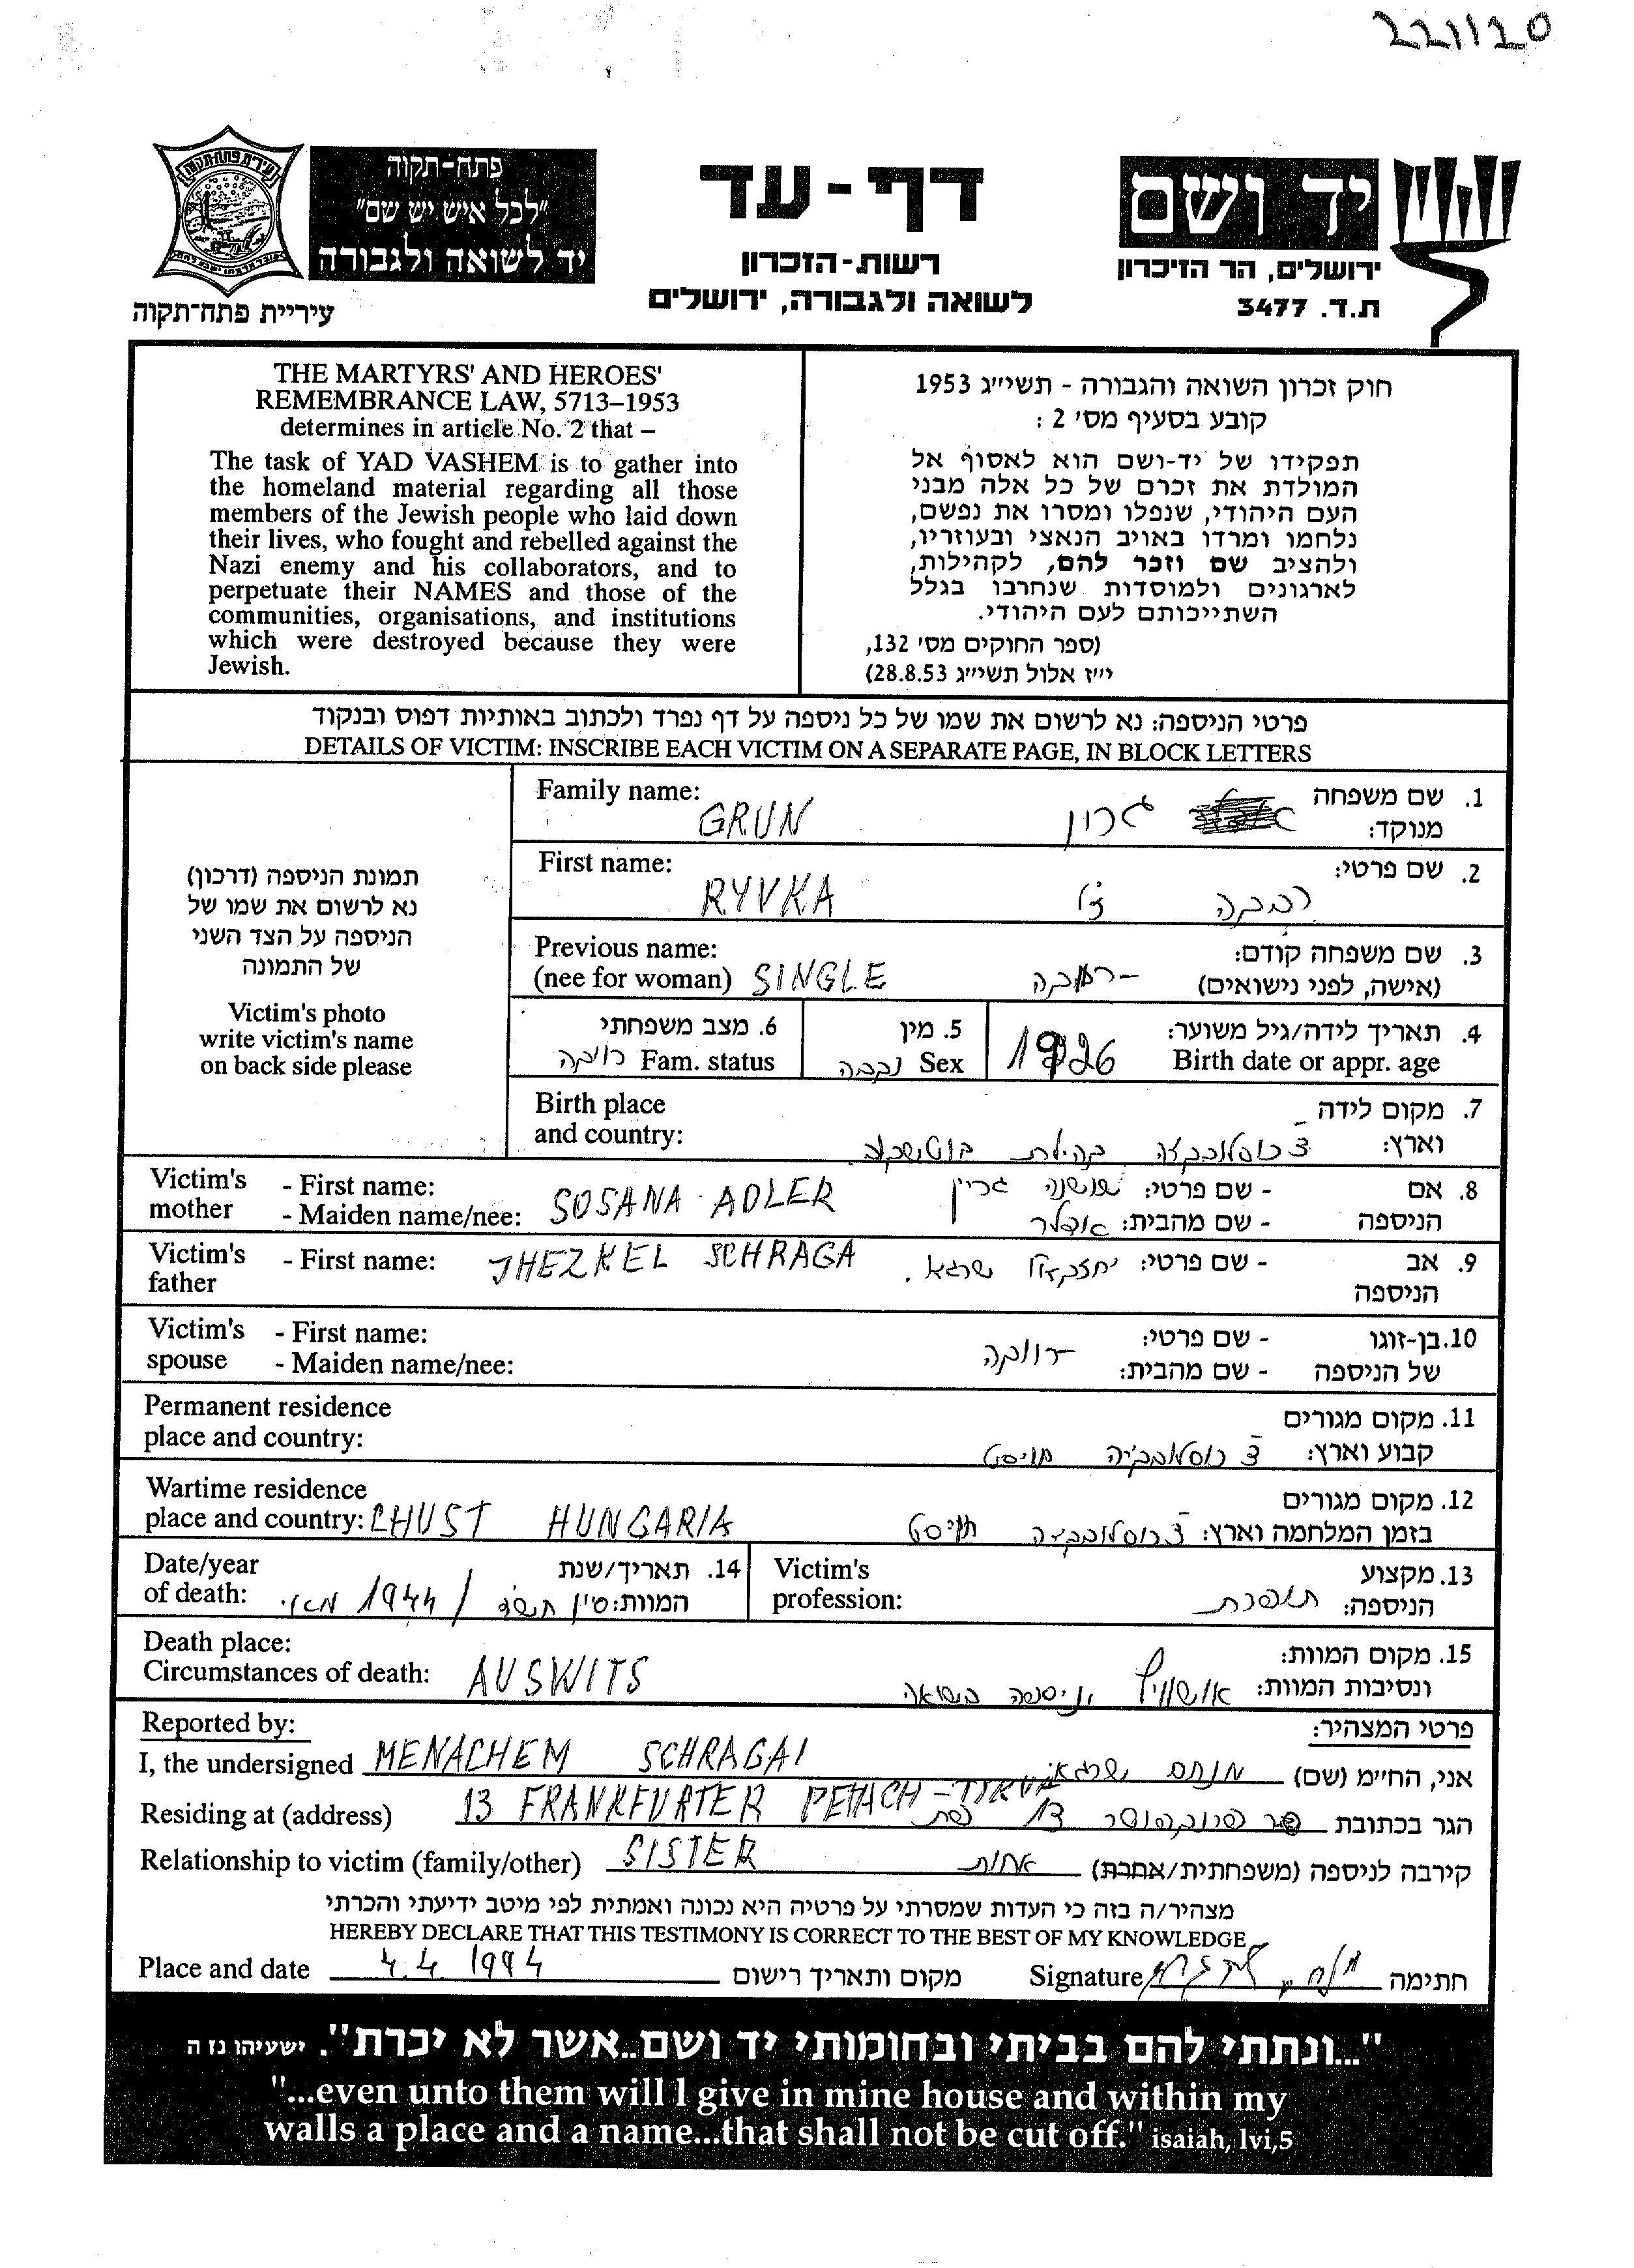 221120
עיריית פתח תקוה
פתח-תקוה
"לכל איש יש שם"
יד לשואה ולגבורה
עיריית פתח-תקוה
דף-עד
רשות-הזכרון
לשואה ולגבורה, ירושלים
יד ושם
ירושלים, הר הזיכרון
ת.ד. 3477
THE MARTYRS' AND HEROES'
REMEMBRANCE LAW, 5713–1953
determines in article No. 2 that –
The task of YAD VASHEM is to gather into
the homeland material regarding all those
members of the Jewish people who laid down
their lives, who fought and rebelled against the
Nazi enemy and his collaborators, and to
perpetuate their NAMES and those of the
communities, organisations, and institutions
which were destroyed because they were
Jewish.
חוק זכרון השואה והגבורה - תשי״ג 1953
קובע בסעיף מס' 2 :
תפקידו של יד-ושם הוא לאסוף אל
המולדת את זכרם של כל אלה מבני
העם היהודי, שנפלו ומסרו את נפשם,
נלחמו ומרדו באויב הנאצי ובעוזריו,
ולהציב שם וזכר להם, לקהילות,
לארגונים ולמוסדות שנחרבו בגלל
השתייכותם לעם היהודי.
(ספר החוקים מס' 132,
י״ז אלול תשי״ג 28.8.53)
פרטי הניספה: נא לרשום את שמו של כל ניספה על דף נפרד ולכתוב באותיות דפוס ובנקוד
DETAILS OF VICTIM: INSCRIBE EACH VICTIM ON A SEPARATE PAGE, IN BLOCK LETTERS
תמונת הניספה (דרכון)
נא לרשום את שמו של
הניספה על הצד השני
של התמונה
Victim's photo
write victim's name
on back side please
Family name: GRUN גרון 1. שם משפחה מנוקד:
First name: RYVKA רבקה 2. שם פרטי:
Previous name: 3. שם משפחה קודם:
(nee for woman) SINGLE רווקה (אישה, לפני נישואים)
6. מצב משפחתי 5. מין 4. תאריך לידה/גיל משוער:
רווקה Fam. status נקבה Sex 1926 Birth date or appr. age
Birth place 7. מקום לידה
and country: צ'כוסלובקיה קהילת וארץ:
Victim's mother - First name: שושנה גרין - שם פרטי: 8. אם
- Maiden name/nee: SOSANA ADLER אדלר - שם מהבית: הניספה
Victim's father - First name: JHEZKEL SCHRAGA יחזקאל שרגא. - שם פרטי: 9. אב הניספה
Victim's - First name: - שם פרטי: 10. בן-זוגו
spouse - Maiden name/nee: רווקה - שם מהבית: של הניספה
Permanent residence 11. מקום מגורים
place and country: צ'כוסלובקיה חוסט קבוע וארץ:
Wartime residence 12. מקום מגורים
place and country: CHUST HUNGARIA צ'כוסלובקיה חוסט בזמן המלחמה וארץ:
Date/year 14. תאריך/שנת
of death: סיון תש"ד / 1944 מאי. המוות:
Victim's 13. מקצוע
profession: תופרת הניספה:
Death place: 15. מקום המוות:
Circumstances of death: AUSWITS אושוויץ ניספה בשואה ונסיבות המוות:
Reported by: פרטי המצהיר:
I, the undersigned MENACHEM SCHRAGAI מנחם שרגאי אני, החיי״מ (שם)
Residing at (address) 13 FRANKFURTER PETACH-TIKVA 13 הגר בכתובת
Relationship to victim (family/other) SISTER אחות קירבה לניספה (משפחתית/אחרת)
מצהיר/ה בזה כי העדות שמסרתי על פרטיה היא נכונה ואמתית לפי מיטב ידיעתי והכרתי
HEREBY DECLARE THAT THIS TESTIMONY IS CORRECT TO THE BEST OF MY KNOWLEDGE
Place and date 4.4 1994 מקום ותאריך רישום Signature חתימה
"...ונתתי להם בביתי ובחומותי יד ושם..אשר לא יכרת". ישעיהו נז ה
"...even unto them will I give in mine house and within my
walls a place and a name...that shall not be cut off." isaiah, lvi,5